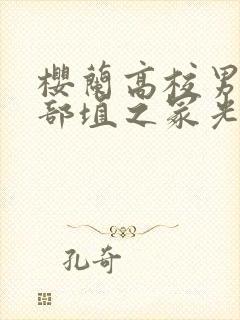 櫻蘭高校男
部埴之冢光
孔奇